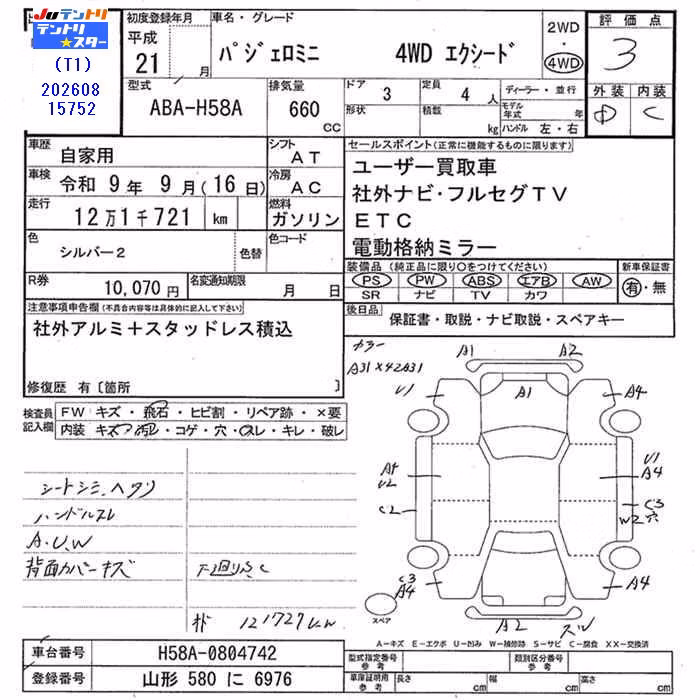 JUテントリ
テントリ
★スター
(T1)
202608
15752
初度登録年月
平成
21 月
車名・グレード
パジェロミニ 4WD エクシード
2WD
・
4WD
評価点
3
外装 内装
D C
型式
ABA-H58A
排気量
660
CC
ドア
3
形状
定員
4 人
積載
kg
ディーラー・並行
モデル
年式 年
ハンドル 左・右
車歴
自家用
シフト
AT
車検
令和 9年 9月(16日)
冷房
AC
走行
12万1千721 km
燃料
ガソリン
色
シルバー2
色替
色コード
R券
10,070円
名変通知期限
月 日
セールスポイント(正常に機能するものに限ります)
ユーザー買取車
社外ナビ・フルセグTV
ETC
電動格納ミラー
装備品(純正品に限り○をつけてください)
PS PW ABS エアB AW
SR ナビ TV カワ
新車保証書
有・無
後日品
保証書・取説・ナビ取説・スペアキー
注意事項申告欄(不具合内容等は具体的に記入して下さい)
社外アルミ+スタッドレス積込
修復歴 有〔箇所 〕
検査員
記入欄
FW キズ・飛石・ヒビ割・リペア跡・×要
内装 キズ・汚レ・コゲ・穴・スレ・キレ・破レ
シートシミ、ヘタリ
ハンドルスレ
A.U.W
背面カバーキズ
下廻りS、C
121727km
カラー
A31×42A31
A1 A2
U1 A1 A4
U2
C2
U1
A4
C3
W2 穴
C3
A4
A4
スペア
A2
A-キズ E-エクボ U-凹み W-補修跡 S-サビ C-腐食 XX-交換済
車台番号
H58A-0804742
登録番号
山形 580 に 6976
型式指定番号
類別区分番号
車庫証明用
参考
長さ cm
幅 cm
高さ cm